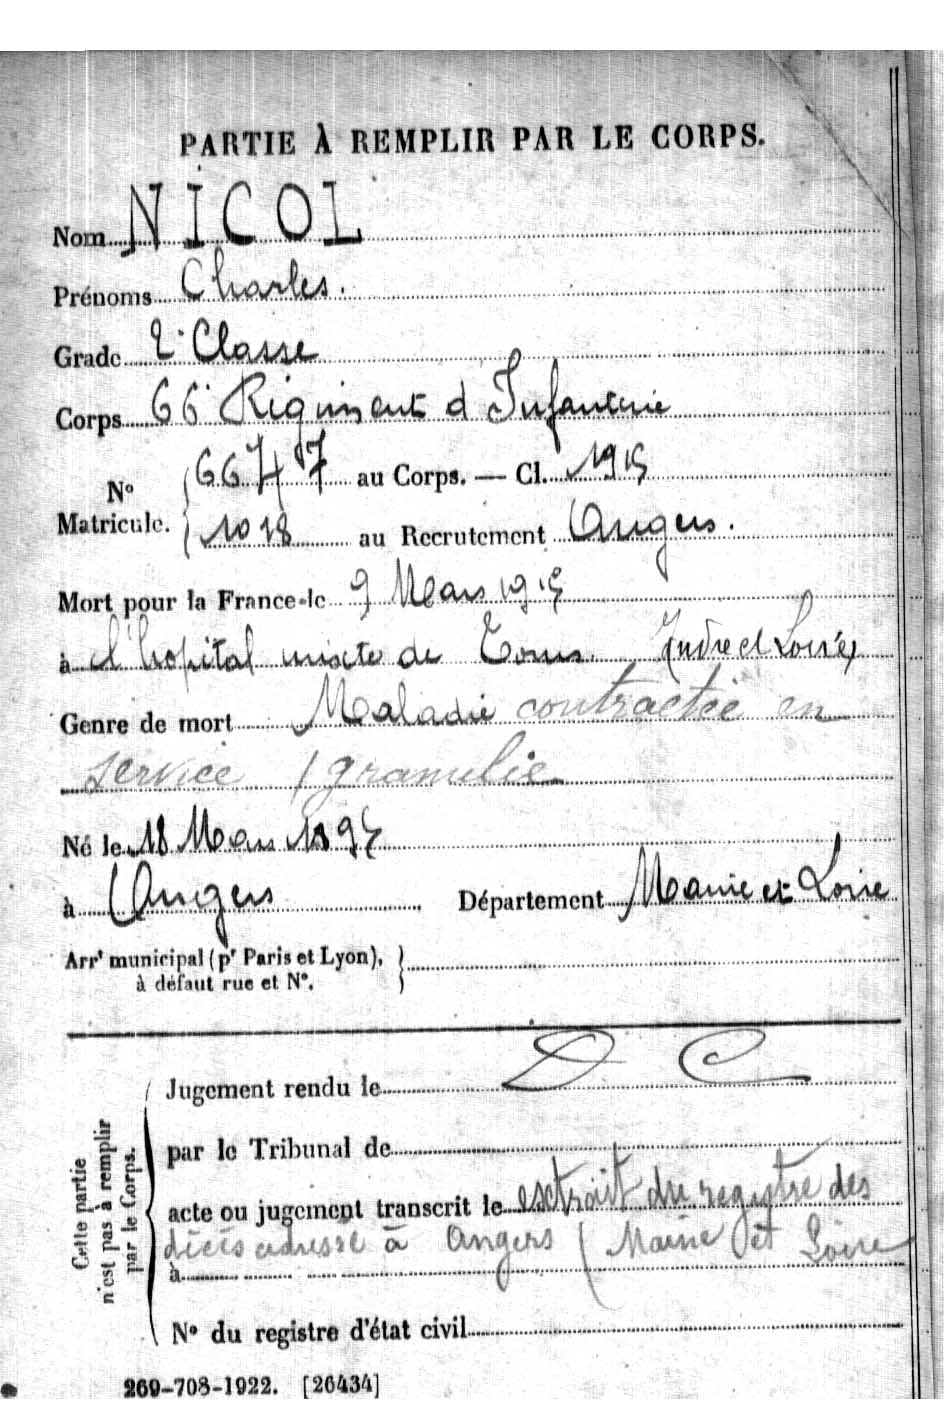 PARTIE À REMPLIR PAR LE CORPS.
Nom NICOL
Prénoms Charles.
Grade 2e Classe
Corps 66e Régiment d'Infanterie
N° Matricule. 6647 au Corps. — Cl. 1915
1018 au Recrutement Angers.
Mort pour la France le 9 Mars 1915
à l'hopital mixte de Tours Indre et Loire
Genre de mort Maladie contractée en
service (granulie
Né le 18 Mars 1895
à Angers Département Maine et Loire
Arrt municipal (pr Paris et Lyon),
à défaut rue et N°.
D C
Jugement rendu le
par le Tribunal de
acte ou jugement transcrit le extrait du registre des
décès adressé à Angers (Maine et Loire
à
N° du registre d'état civil
Cette partie
n'est pas à remplir
par le Corps.
269-708-1922. [26434]